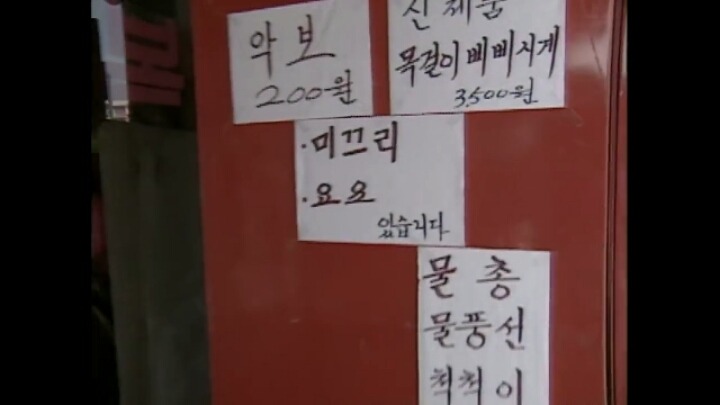 악보
200원
신제품
목걸이 삐삐시계
3,500원
·미끄리
·요요
있습니다
물총
물풍선
척척이